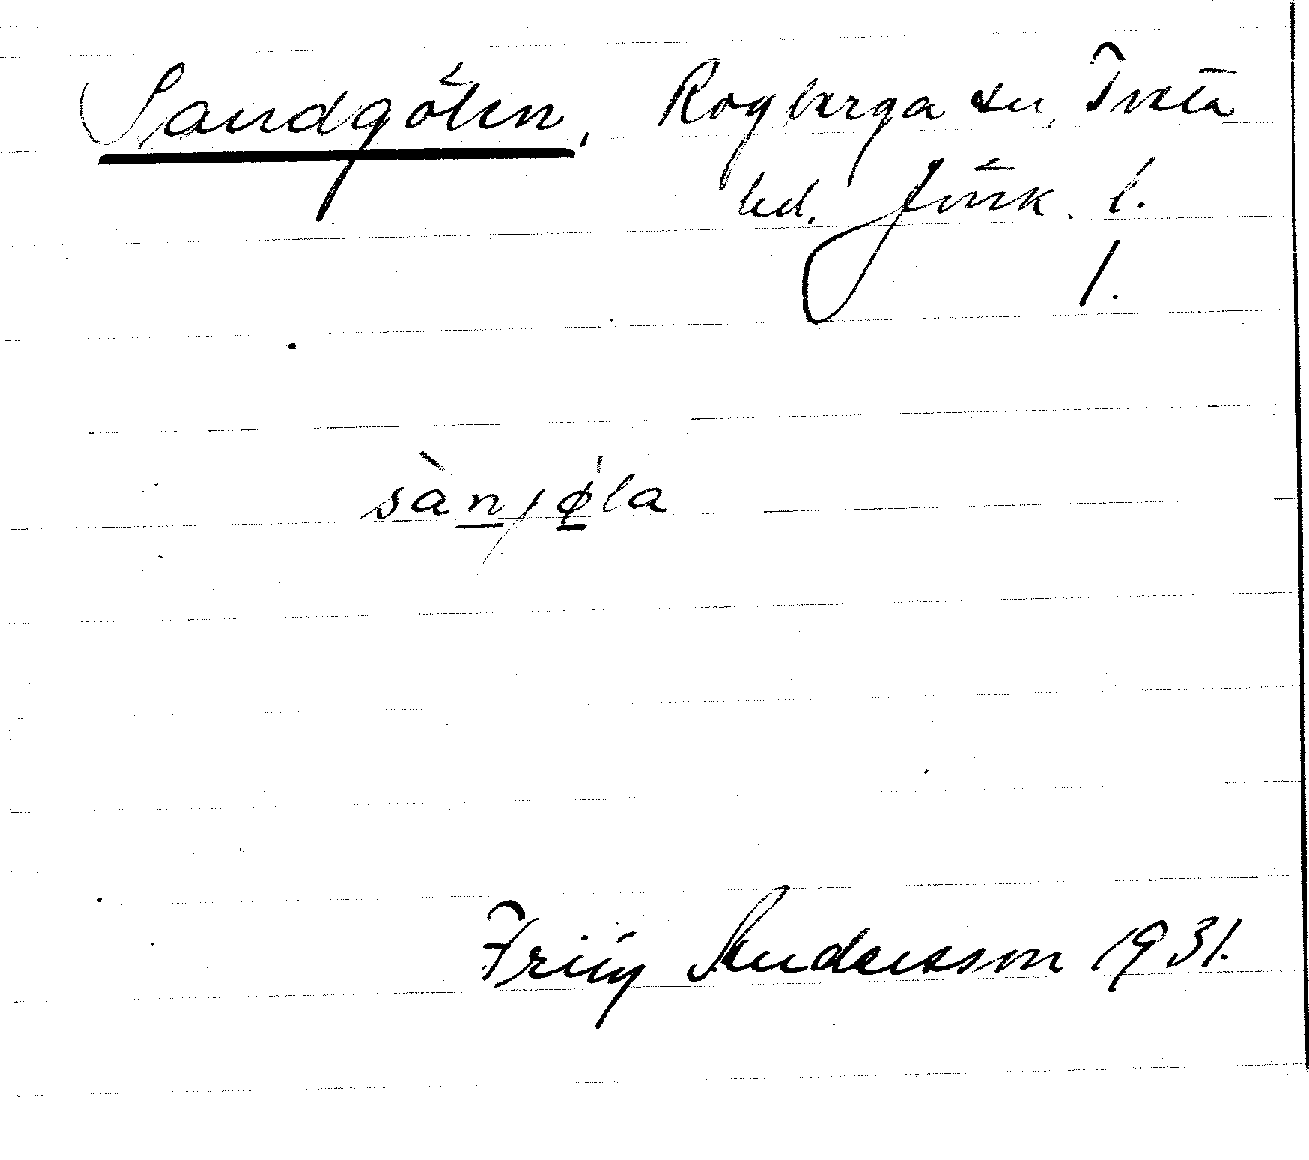 Sandgölen, Rogberga sn, Tveta
hd. Jönk. l.
1.
sànjø̀la
Friij Andersson 1931.